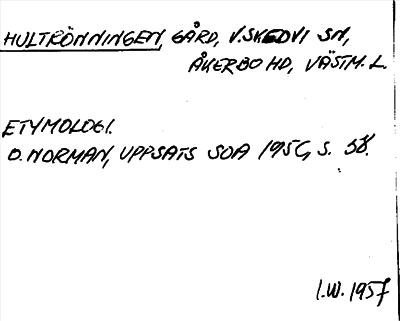 HULTRÖNNINGEN, GÅRD, V. SKEDVI SN,
ÅKERBO HD, VÄSTM. L.
ETYMOLOGI.
O. NORMAN, UPPSATS SOA 1956, S. 58.
I.W. 1957